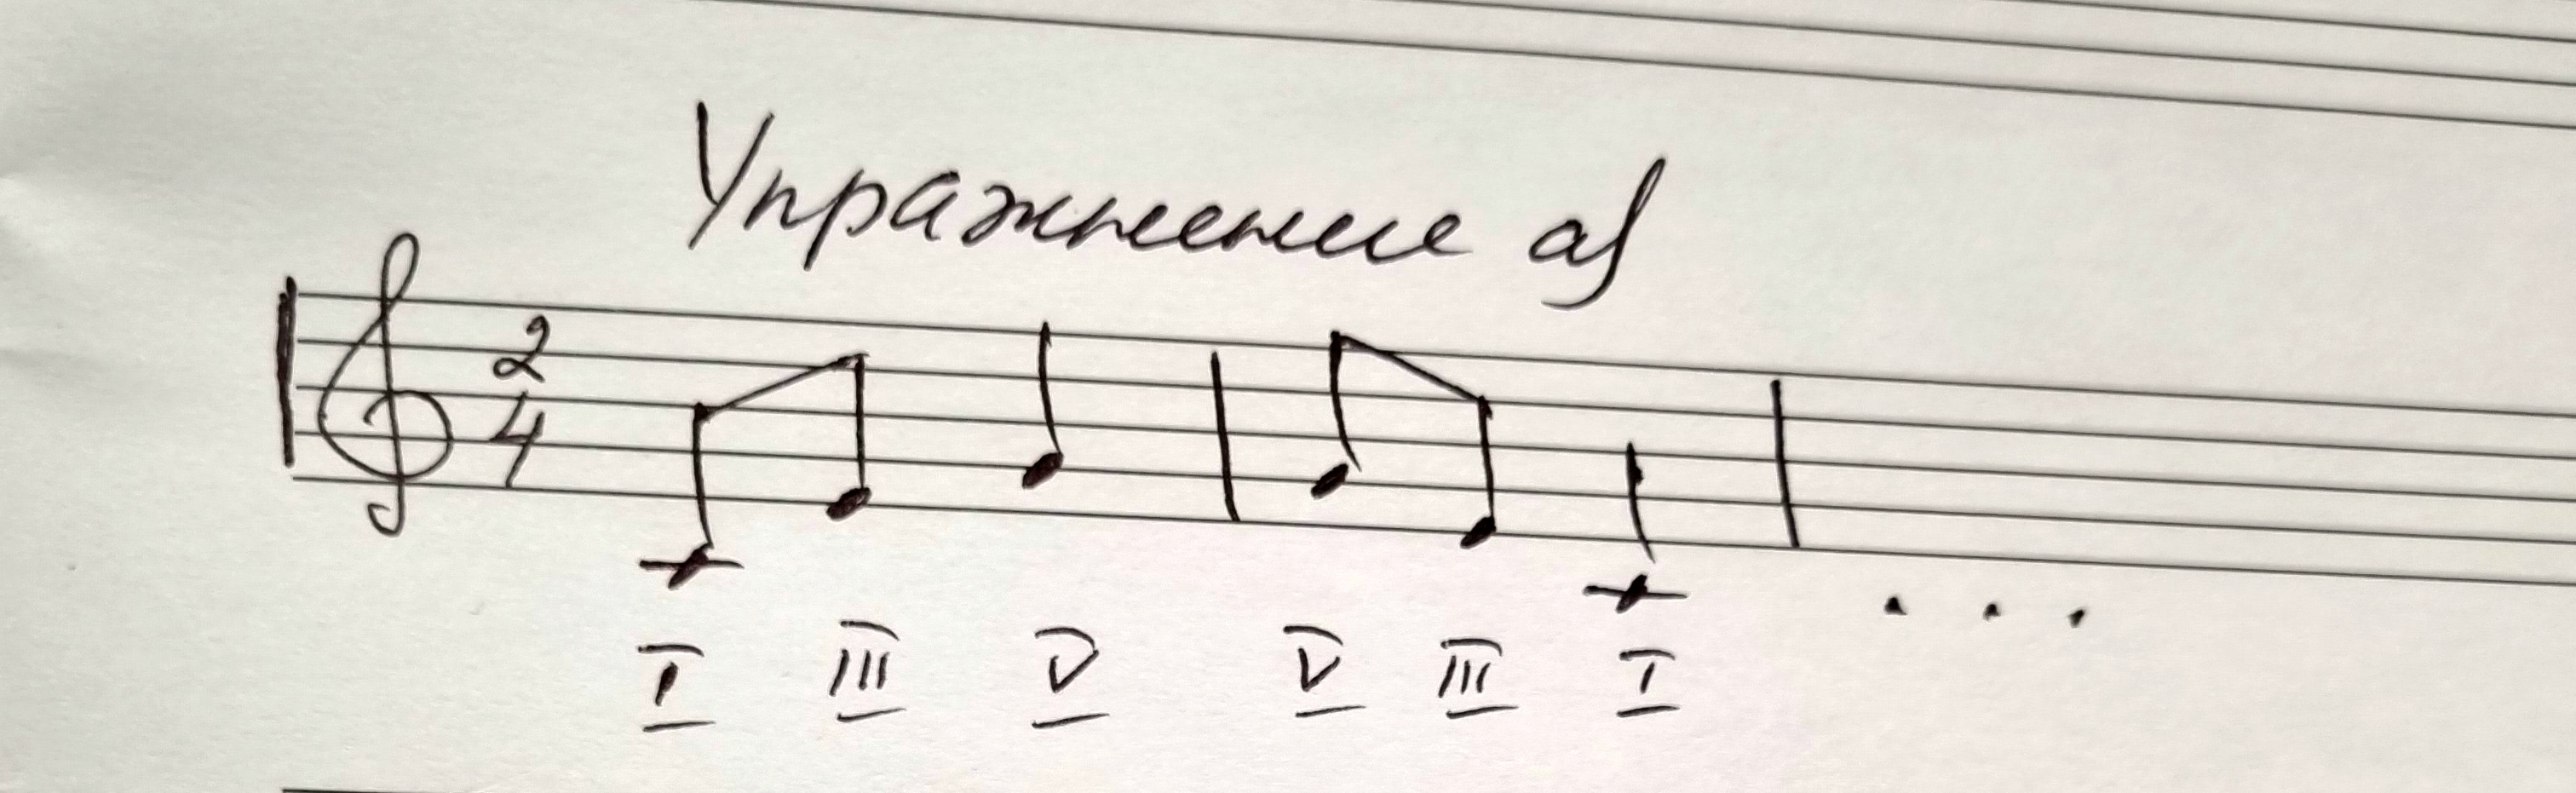 Упражнение а)
2
4
I III V V III I
...